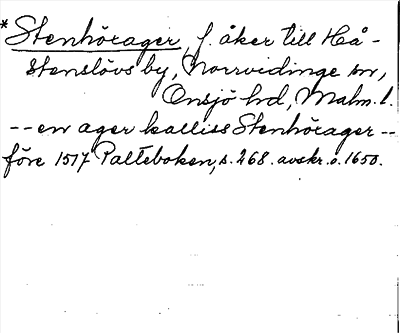 *Stenhörager, f. åker till Hå-
stenslövs by, Norrvidinge sn,
Onsjö hd, Malm. l.
-- en ager kalliss Stenhörager --
före 1517 Palteboken, s. 268. avskr. o. 1650.